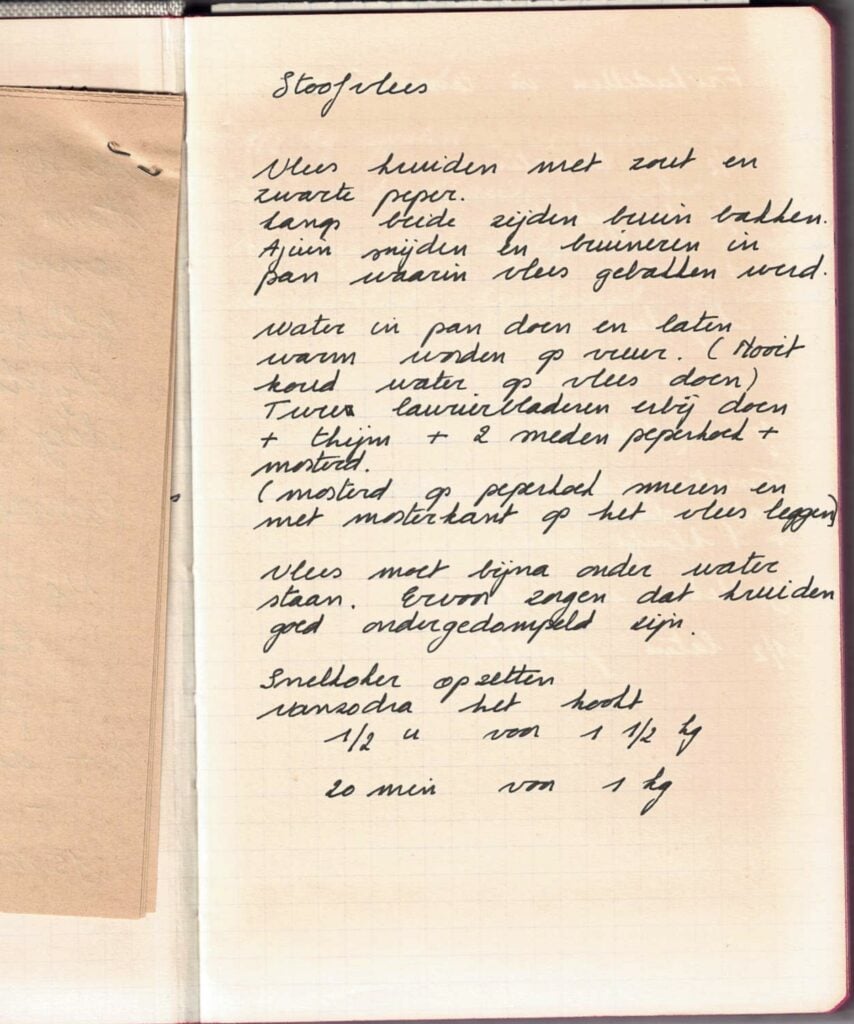 Stoofvlees
Vlees kruiden met zout en
zwarte peper.
Langs beide zijden bruin bakken.
Ajuin snijden en bruineren in
pan waarin vlees gebakken werd.
Water in pan doen en laten
warm worden op vuur. (Nooit
koud water op vlees doen)
Twee laurierbladeren erbij doen
+ thijm + 2 sneden peperkoek +
mosterd.
(mosterd op peperkoek smeren en
met mosterkant op het vlees leggen)
Vlees moet bijna onder water
staan. Ervoor zorgen dat kruiden
goed ondergedompeld zijn.
Snelkoker opzetten
vanzodra het kookt
1/2 u voor 1 1/2 kg
20 min voor 1 kg